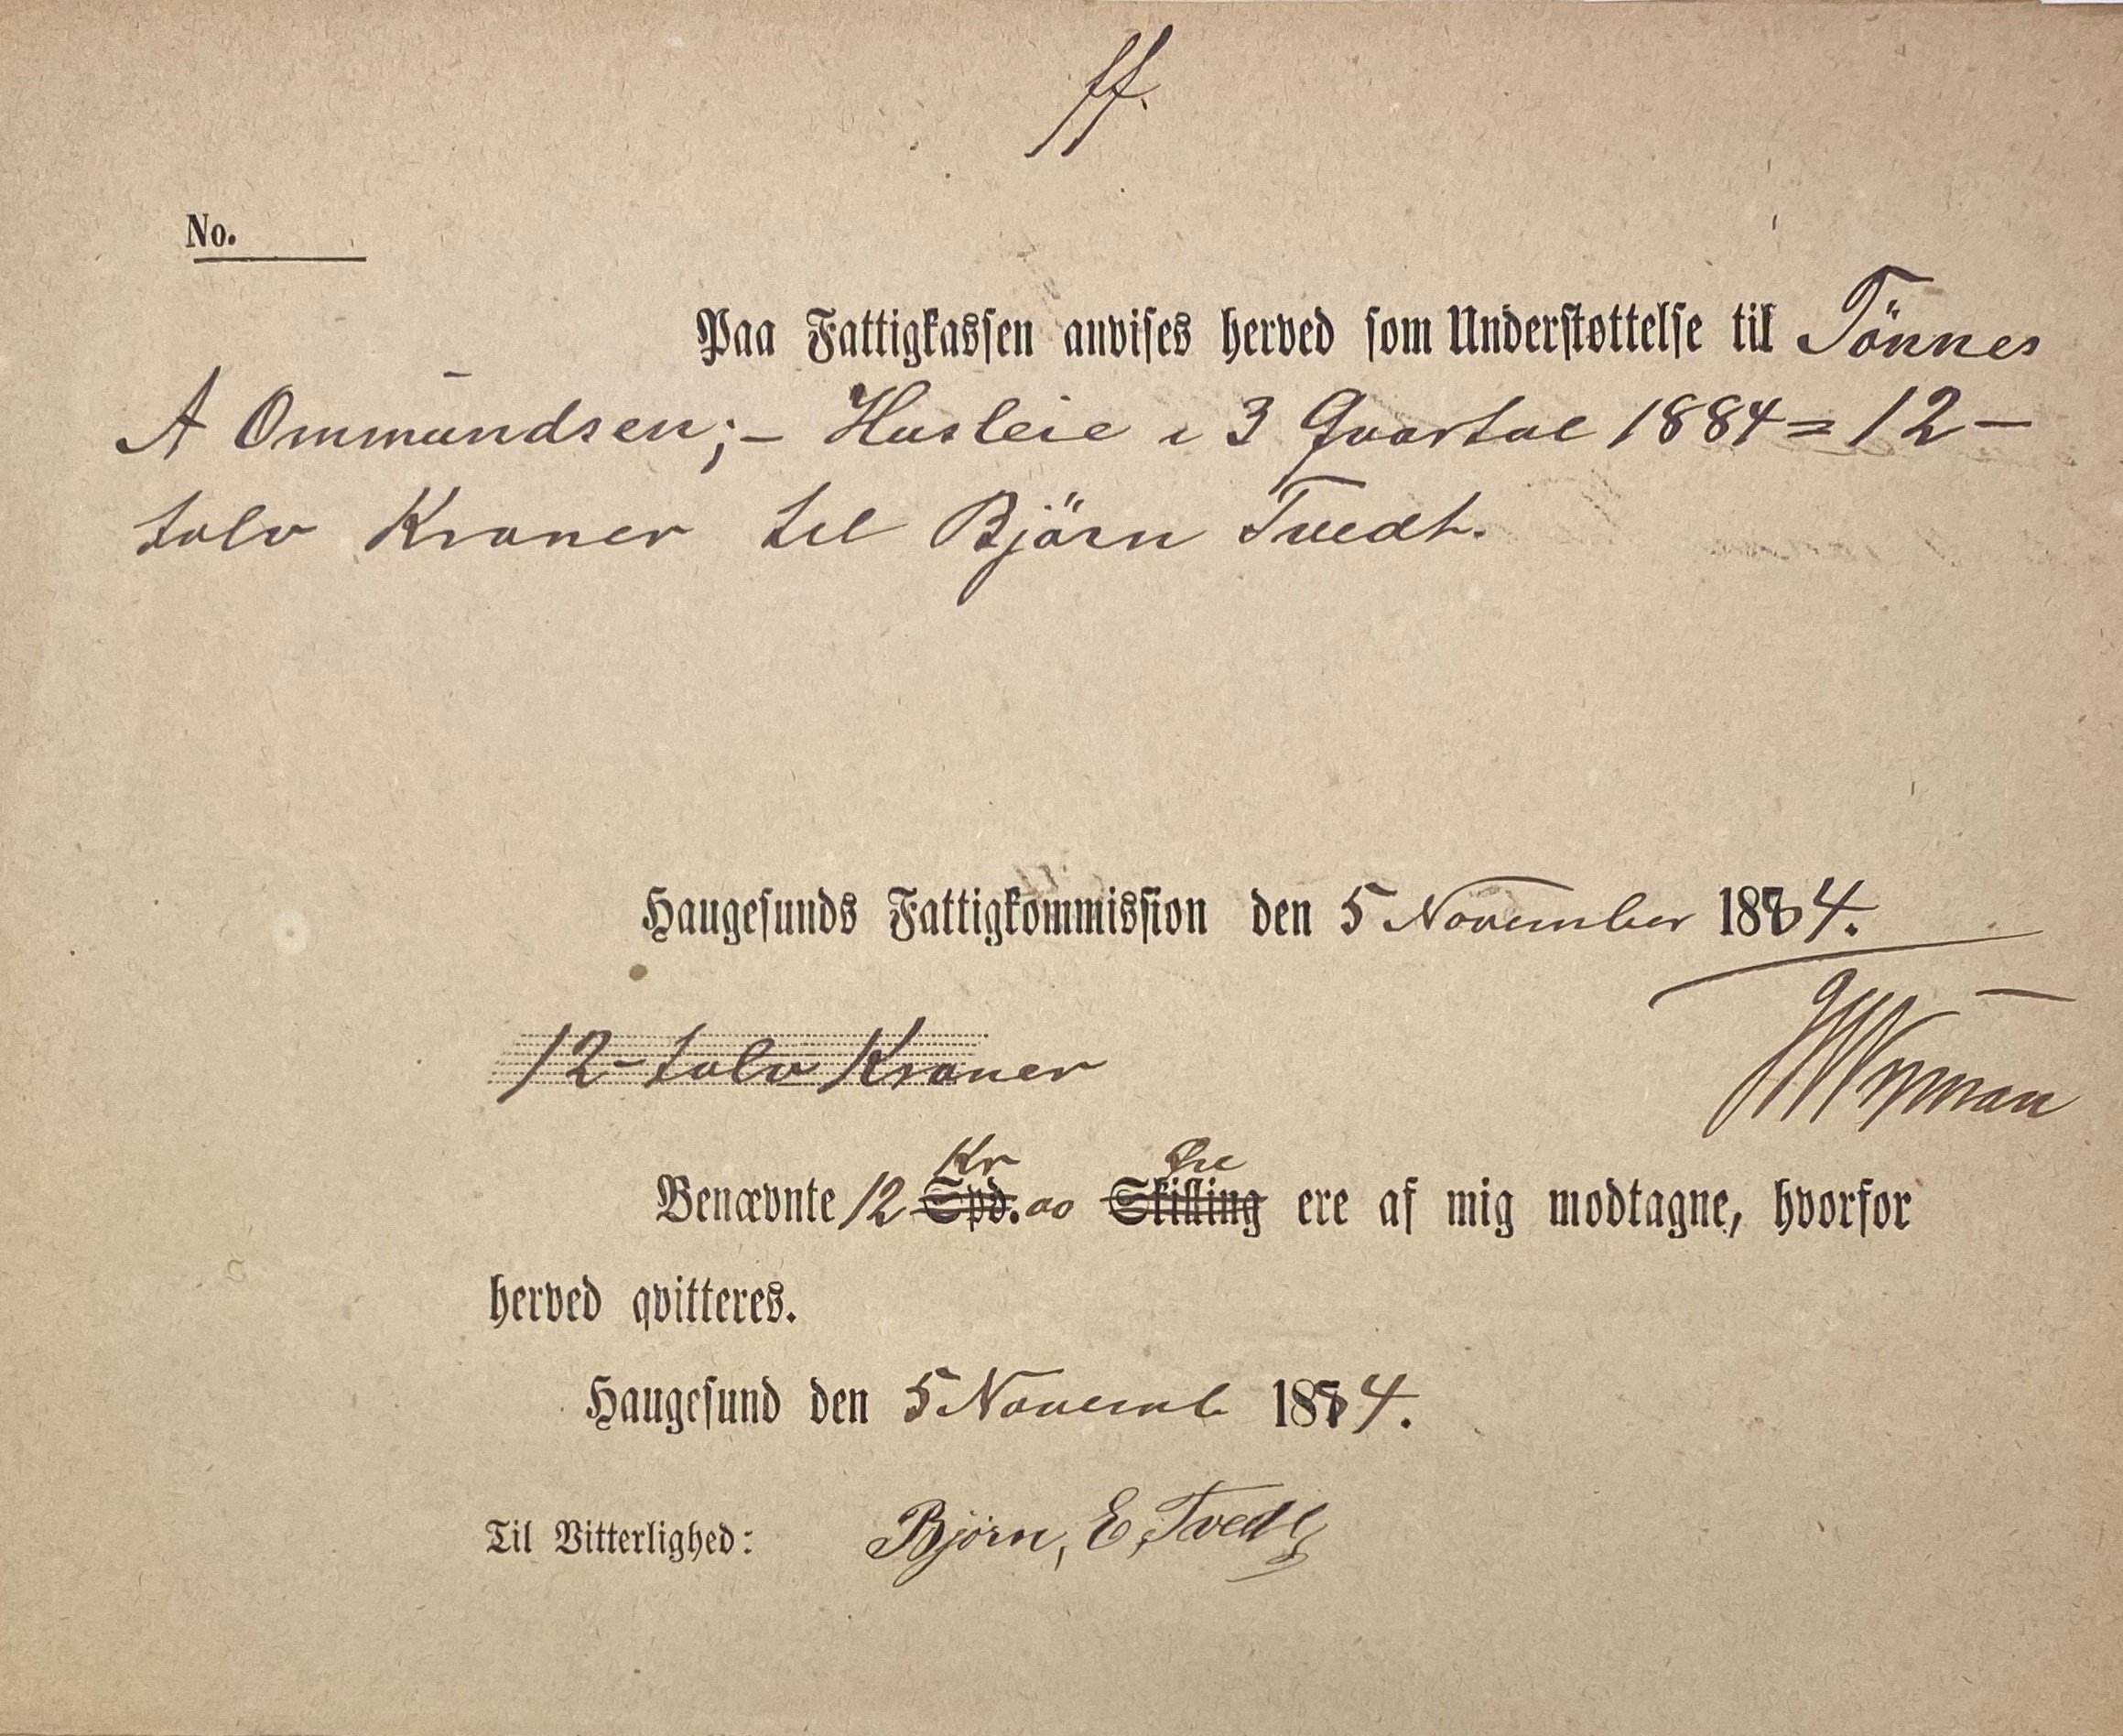 ff.
No.
Paa Fattigkassen anvises herved som Understøttelse til Tönnes
A Ommundsen; – Husleie i 3 Qvartal 1884 = 12 –
tolv Kroner til Björn Tvedt.
Haugesunds Fattigkommission den 5 November 1884.
12 – tolv Kroner
Kr Øre
Benævnte 12 Spd. 00 Skilling ere af mig modtagne, hvorfor
herved qvitteres.
Haugesund den 5 Novemb 1884.
Til Vitterlighed: Björn, E, Tvedt